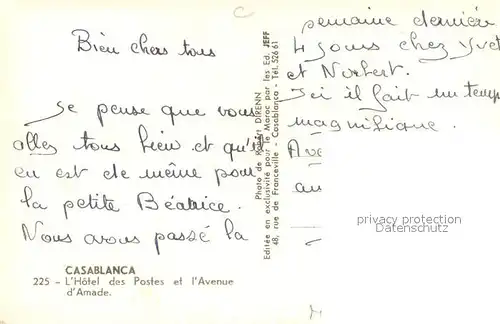 Bien chers tous
Je pense que vous
allez tous bien et qu'il
en est de même pour
la petite Béatrice.
Nous avons passé la
semaine dernière
4 jours chez Yvet
et Norbert.
Ici il fait un temps
magnifique.
Ave
au
CASABLANCA
225 - L'Hôtel des Postes et l'Avenue
d'Amade.
Photo de Robert DIRENN
Editée en exclusivité pour le Maroc par les Ed. JEFF
48, rue de Franceville - Casablanca - Tél. 526 61
privacy protection
Datenschutz